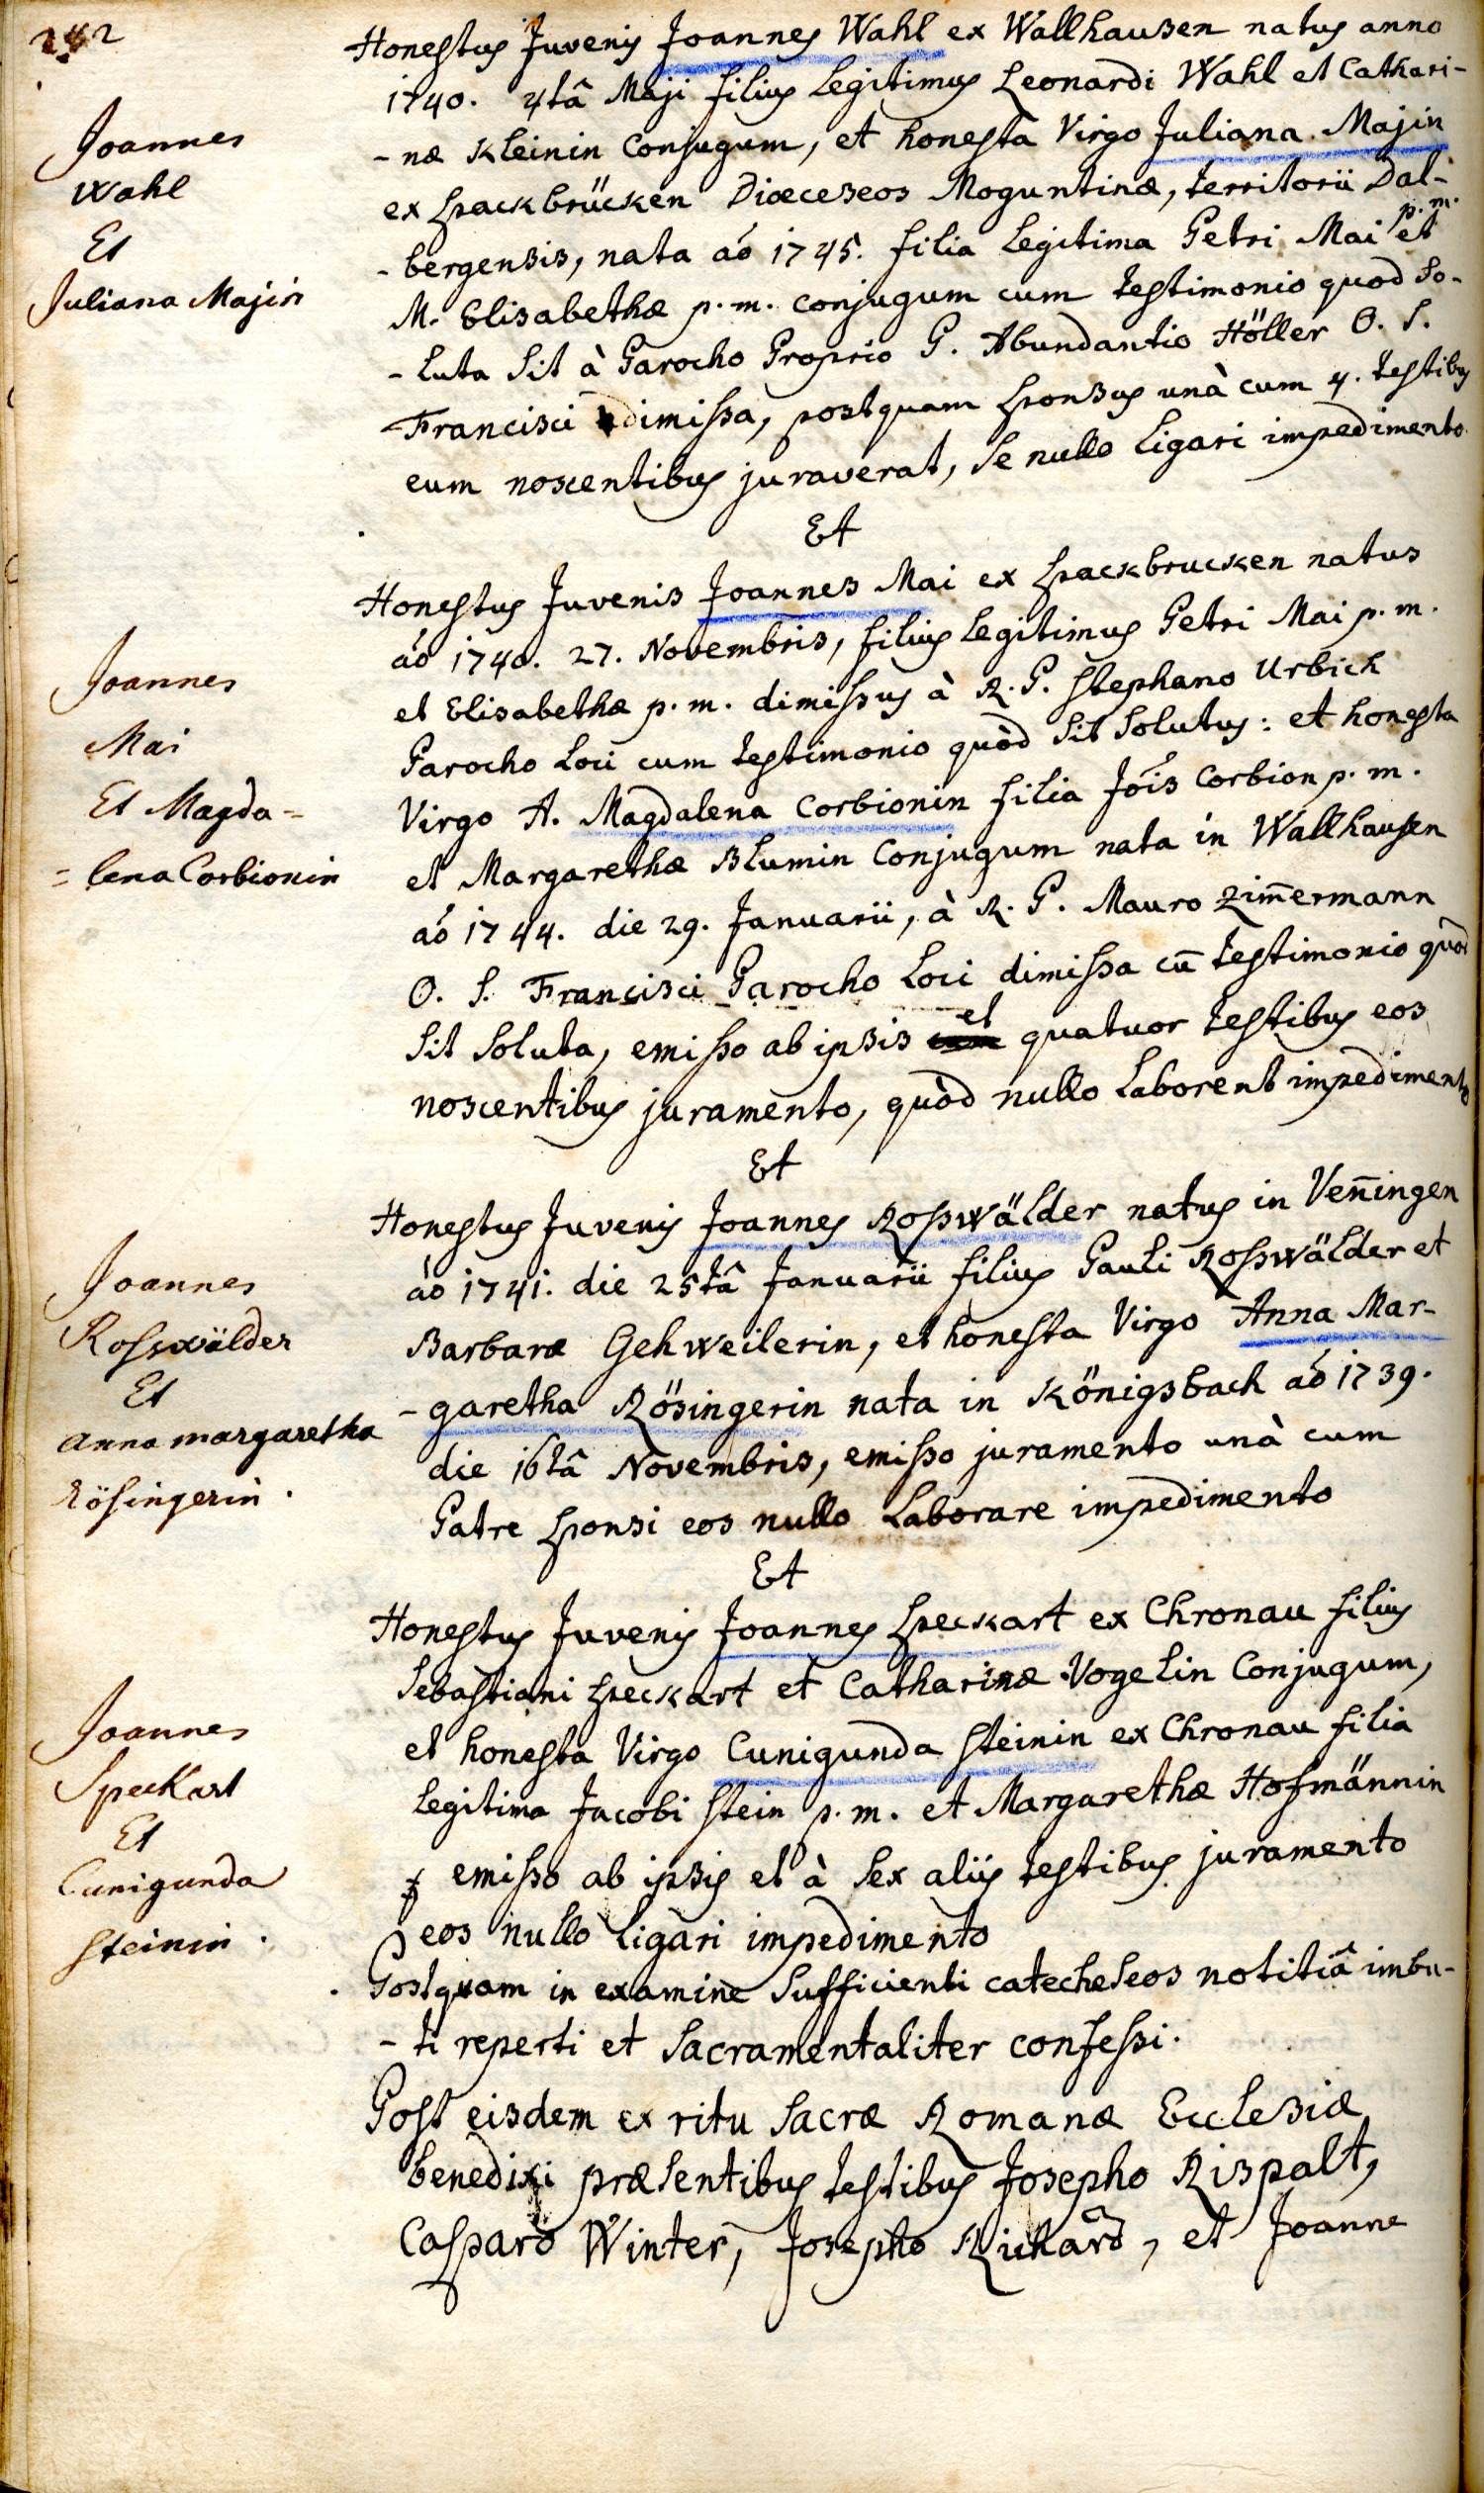 242
Joannes
Wahl
Et
Juliana Majin
Honestus Juvenis Joannes Wahl ex Wallhausen natus anno
1740. 4tâ Maji filius Legitimus Leonardi Wahl et Cathari-
-næ Kleinin Conjugum, et honesta Virgo Juliana Majin
ex Spackbrücken Diœceseos Moguntinæ, territorii Dal-
-bergensis, nata aó 1745. filia Legitima Petri Mai p. m. et
M. Elisabethæ p. m. conjugum cum testimonio quod So-
-luta Sit à Parocho Proprio P. Abundantio Höller O. S.
Francisci dimissa, postquam Sponsus unà cum 4. testibus
eum noscentibus juraverat, Se nullo Ligari impedimento.
Et
Joannes
Mai
Et Magda=
=lena Corbionin
Honestus Juvenis Joannes Mai ex Spackbrucken natus
aó 1740. 27. Novembris, filius Legitimus Petri Mai p. m.
et Elisabethæ p. m. dimissus à R. P. Stephano Urbich
Parocho Loci cum testimonio quòd Sit Solutus: et honesta
Virgo A. Magdalena Corbionin filia Jois Corbion p. m.
et Margarethæ Blumin Conjugum nata in Wallhausen
aó 1744. die 29. Januarii, à R. P. Mauro Zim̄ermann
O. S. Francisci Parocho Loci dimissa cū testimonio quòd
Sit Soluta, emisso ab ipsis et quatuor testibus eos
noscentibus juramento, quòd nullo Laborent impedimento
Et
Joannes
Rosswälder
Et
Anna margaretha
Rösingerin.
Honestus Juvenis Joannes Rosswälder natus in Ven̄ingen
aò 1741. die 25tâ Januarii filius Pauli Rosswälder et
Barbaræ Gehweilerin, et honesta Virgo Anna Mar-
-garetha Rösingerin nata in Königsbach aó 1739.
die 16tâ Novembris, emisso juramento unà cum
Patre Sponsi eos nullo Laborare impedimento
Et
Joannes
Speckart
Et
Cunigunda
Steinin.
Honestus Juvenis Joannes Speckart ex Chronau filius
Sebastiani Speckart et Catharinæ Vogelin Conjugum,
et honesta Virgo Cunigunda Steinin ex Chronau filia
Legitima Jacobi Stein p. m. et Margarethæ Hofmännin
emisso ab ipsis et à Sex aliis testibus juramento
eos nullo Ligari impedimento
Postquam in examine Sufficienti catecheseos notitiâ imbu-
-ti reperti et Sacramentaliter confessi.
Post eisdem ex ritu Sacræ Romanæ Ecclesiæ
benedixi præsentibus testibus Josepho Rispalt,
Casparo Winter, Josepho Richard, et Joanne